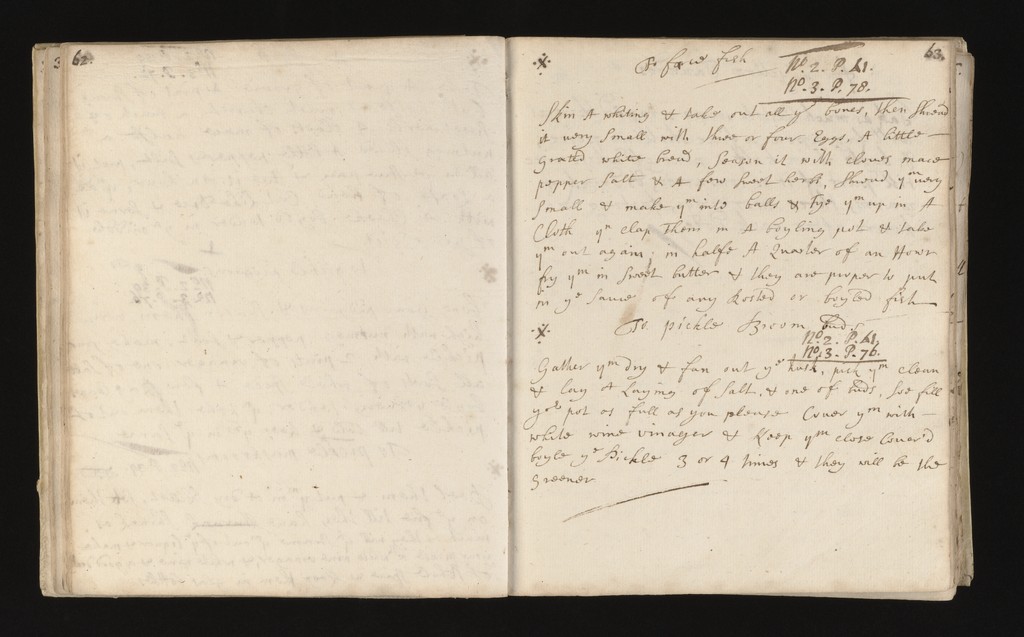 62.
63.
To frie fish
No. 2. P. 41.
No. 3. P. 78.
Skin A whiting & take out all ye bones, then Shread
it very Small with three or four Eggs, A little
Grated white bread, Season it with cloves mace
pepper Salt & A few Sweet herbs, Shread ym very
Small & make ym into balls & tye ym up in A
Cloth yn clap them in A boyling pot & take
ym out again, in halfe A Quarter of an Hour
fry ym in Sweet butter & they are proper to put
in ye Sauce of any Rosted or boyled fish
To pickle Broom Buds
No. 2. P. 41.
No. 3. P. 76.
Gather ym dry & fan out ye husk, pick ym clean
& lay A Laying of Salt, & one of buds, Soe fill
yor pot as full as you please Cover ym with
white wine vinager & Keep ym close Cover'd
boyle ye Pickle 3 or 4 times & they will be the
Greener